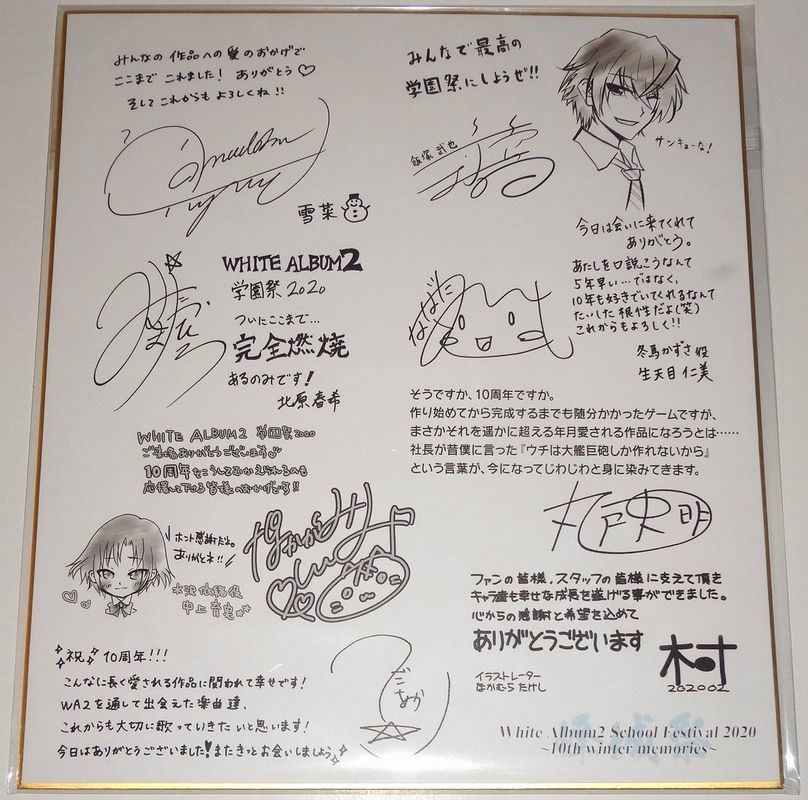 みんなの作品への愛のおかげで
ここまで これました！ ありがとう♡
そして これからも よろしくね！！
雪菜
みんなで最高の
学園祭にしようぜ!!
飯塚武也
サンキューな！
WHITE ALBUM2
学園祭2020
ついにここまで…
完全燃焼
あるのみです！
北原春希
今日は会いに来てくれて
ありがとう。
あたしを口説こうなんて
5年早い…ではなく、
10年も好きでいてくれるなんて
たいした根性だよ(笑)
これからもよろしく!!
冬馬かずさ役
生天目 仁美
なばため
そうですか、10周年ですか。
作り始めてから完成するまでも随分かかったゲームですが、
まさかそれを遥かに超える年月愛される作品になろうとは……
社長が昔僕に言った『ウチは大艦巨砲しか作れないから』
という言葉が、今になってじわじわと身に染みてきます。
丸戸史明
WHITE ALBUM2 学園祭2020
ご来場ありがとうございます
10周年をこうしてむかえられるのも
応援して下さる皆様のおかげです!!
ホント感謝だよ。
ありがとネ!!
水沢依緒役
中上育実
ファンの皆様、スタッフの皆様に支えて頂き
キャラ達も幸せな成長を遂げる事ができました。
心からの感謝と希望を込めて
ありがとうございます
イラストレーター
なかむら たけし
村
202002
祝 10周年!!!
こんなに長く愛される作品に関われて幸せです！
WA2を通して出会えた楽曲達、
これからも大切に歌っていきたいと思います！
今日はありがとうございました！またきっとお会いしましょう
White Album2 School Festival 2020
~10th winter memories~